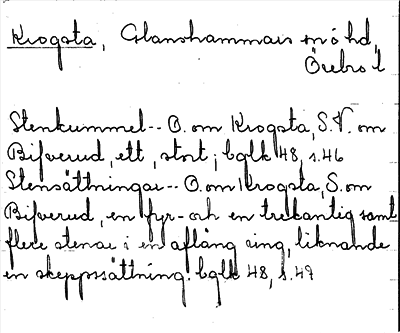 Krogsta, Glanshammars sn ö hd,
Örebro l
Stenkummel-- O. om Krogsta, S.V. om
Bifverud, ett, stort; bglk 48, s. 46
Stensättningar-- O. om Krogsta, S. om
Bifverud, en fyr- och en trekantig samt
flere stenar i en aflång ring, liknande
en skeppssättning. bglk 48, s. 49